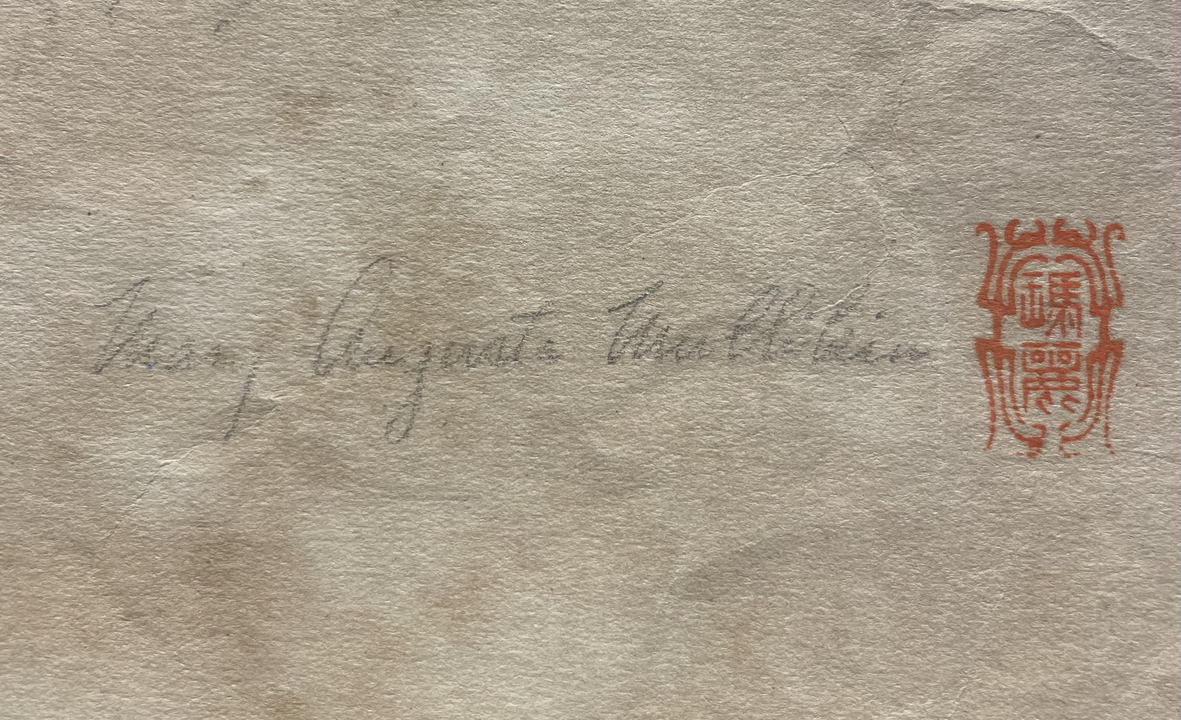 Mary Augusta Mullikin